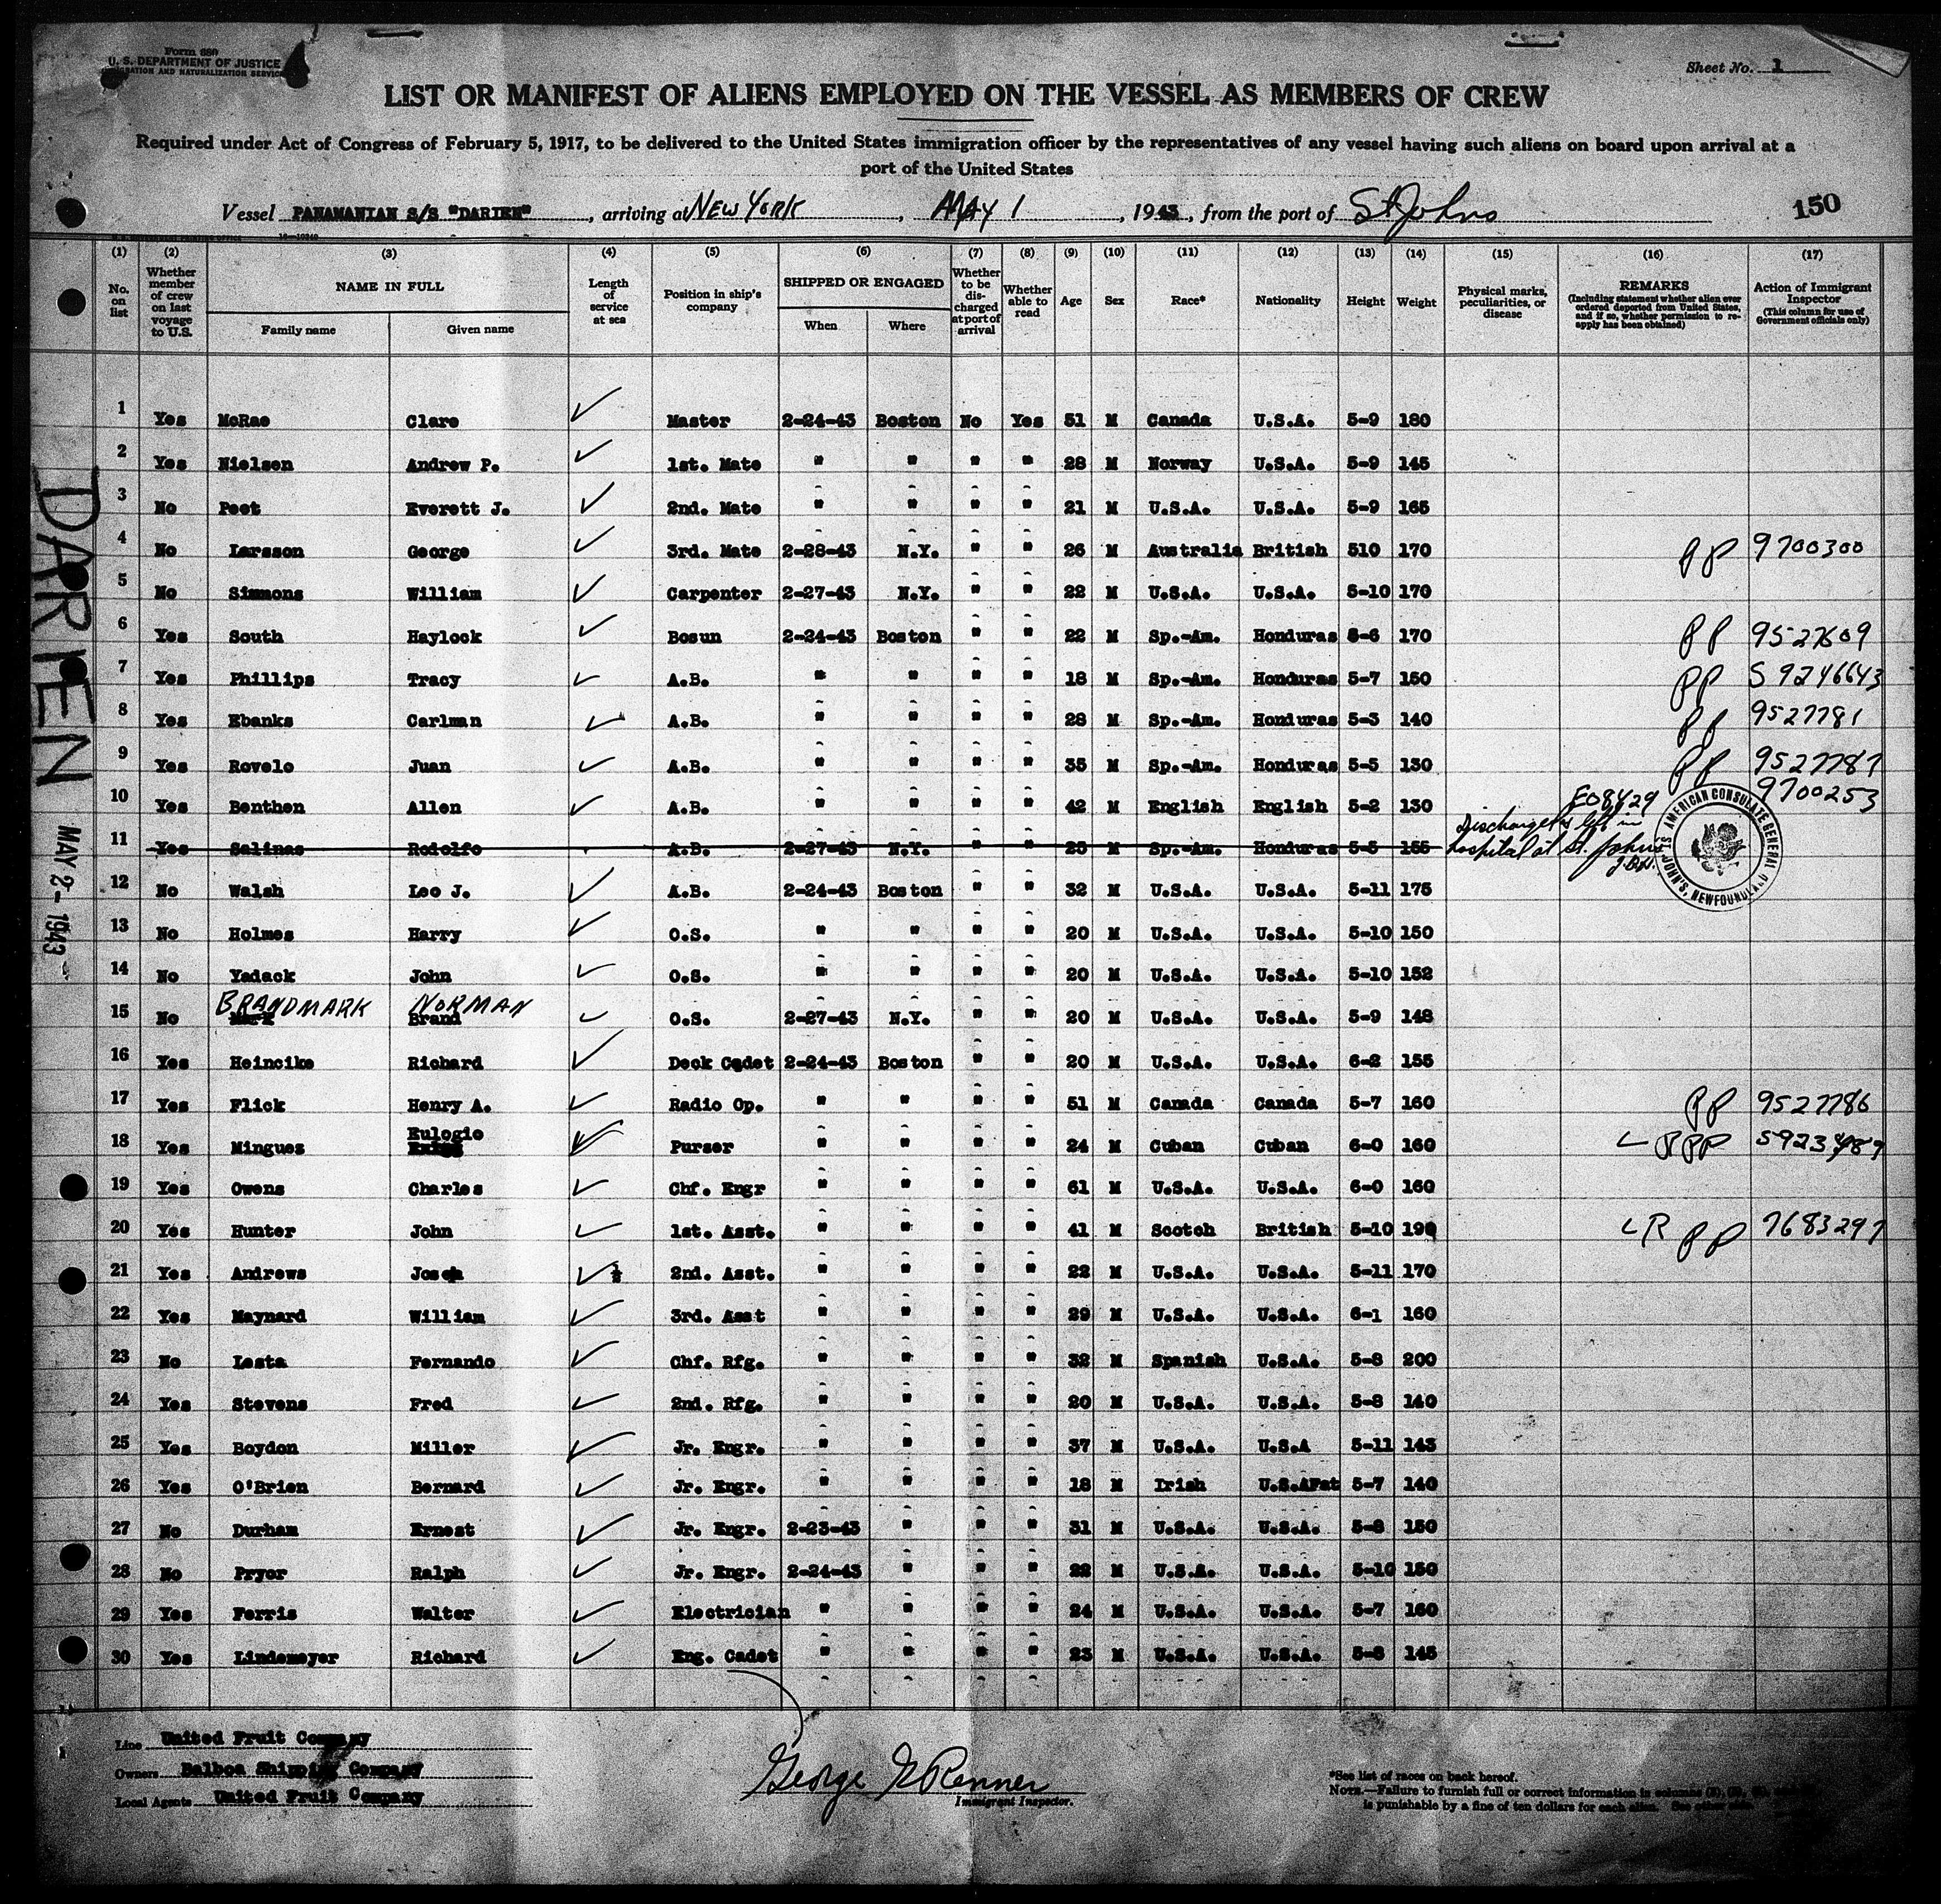 Form 680
U. S. DEPARTMENT OF JUSTICE
IMMIGRATION AND NATURALIZATION SERVICE
Sheet No. 1
LIST OR MANIFEST OF ALIENS EMPLOYED ON THE VESSEL AS MEMBERS OF CREW
Required under Act of Congress of February 5, 1917, to be delivered to the United States immigration officer by the representatives of any vessel having such aliens on board upon arrival at a
port of the United States
Vessel PANAMANIAN S/S "DARIEN", arriving at NEW YORK, MAY 1, 1943, from the port of St. Johns 150
(1) (2) (3) (4) (5) (6) (7) (8) (9) (10) (11) (12) (13) (14) (15) (16) (17)
No. on list
Whether member of crew on last voyage to U.S.
NAME IN FULL
Family name Given name
Length of service at sea
Position in ship's company
SHIPPED OR ENGAGED
When Where
Whether to be discharged at port of arrival
Whether able to read
Age Sex Race* Nationality Height Weight
Physical marks, peculiarities, or disease
REMARKS
(Including statement whether alien ever ordered deported from United States, and if so, whether permission to reapply has been obtained)
Action of Immigrant Inspector
(This column for use of Government officials only)
1 Yes McRae Clare Master 2-24-43 Boston No Yes 51 M Canada U.S.A. 5-9 180
2 Yes Nielsen Andrew P. 1st. Mate " " " " 28 M Norway U.S.A. 5-9 145
3 No Peet Everett J. 2nd. Mate " " " " 21 M U.S.A. U.S.A. 5-9 165
4 No Larsson George 3rd. Mate 2-28-43 N.Y. " " 26 M Australia British 510 170 PP 9700300
5 No Simmons William Carpenter 2-27-43 N.Y. " " 22 M U.S.A. U.S.A. 5-10 170
6 Yes South Haylock Bosun 2-24-43 Boston " " 22 M Sp.-Am. Honduras 5-6 170 PP
7 Yes Phillips Tracy A.B. " " " " 18 M Sp.-Am. Honduras 5-7 150 PP S 9246643
8 Yes Ebanks Carlman A.B. " " " " 28 M Sp.-Am. Honduras 5-3 140 PP 9527781
9 Yes Rovelo Juan A.B. " " " " 35 M Sp.-Am. Honduras 5-5 130 PP 9527787
10 Yes Benthen Allen A.B. " " " " 42 M English English 5-2 130 E08429 9700253
11 Yes Salinas Rodolfo A.B. 2-27-43 N.Y. " " 25 M Sp.-Am. Honduras 5-5 155 Discharged left in
hospital at St. Johns
AMERICAN CONSULATE GENERAL ST. JOHN'S, NEWFOUNDLAND
12 No Walsh Leo J. A.B. 2-24-43 Boston " " 32 M U.S.A. U.S.A. 5-11 175
13 No Holmes Harry O.S. " " " " 20 M U.S.A. U.S.A. 5-10 150
14 No Yadack John O.S. " " " " 20 M U.S.A. U.S.A. 5-10 152
BRANDMARK NORMAN
15 No Mark Brand O.S. 2-27-43 N.Y. " " 20 M U.S.A. U.S.A. 5-9 148
16 Yes Heincike Richard Deck Cadet 2-24-43 Boston " " 20 M U.S.A. U.S.A. 6-2 155
17 Yes Flick Henry A. Radio Op. " " " " 51 M Canada Canada 5-7 160 PP 9527786
18 Yes Minguez Eulogio Purser " " " " 24 M Cuban Cuban 6-0 160
19 Yes Owens Charles Chf. Engr " " " " 61 M U.S.A. U.S.A. 6-0 160
20 Yes Hunter John 1st. Asst. " " " " 41 M Scotch British 5-10 190 LR PP 7683297
21 Yes Andrews Joseph 2nd. Asst. " " " " 22 M U.S.A. U.S.A. 5-11 170
22 Yes Maynard William 3rd. Asst " " " " 29 M U.S.A. U.S.A. 6-1 160
23 No Lesta Fernando Chf. Rfg. " " " " 32 M Spanish U.S.A. 5-8 200
24 Yes Stevens Fred 2nd. Rfg. " " " " 20 M U.S.A. U.S.A. 5-8 140
25 Yes Boydon Miller Jr. Engr. " " " " 37 M U.S.A. U.S.A 5-11 143
26 Yes O'Brien Bernard Jr. Engr. " " " " 18 M Irish U.S.AFat 5-7 140
27 No Durham Ernest Jr. Engr. 2-23-43 " " " 31 M U.S.A. U.S.A. 5-8 150
28 No Pryor Ralph Jr. Engr. 2-24-43 " " " 22 M U.S.A. U.S.A. 5-10 150
29 Yes Ferris Walter Electrician " " " " 24 M U.S.A. U.S.A. 5-7 160
30 Yes Lindemeyer Richard Eng. Cadet " " " " 23 M U.S.A. U.S.A. 5-8 145
DARIEN
MAY 2-1943
Line United Fruit Company
Owners Balboa Shipping Company
Local Agents United Fruit Company
George Renner
Immigrant Inspector.
*See list of races on back hereof.
NOTE.—Failure to furnish full or correct information in columns
is punishable by a fine of ten dollars for each alien.